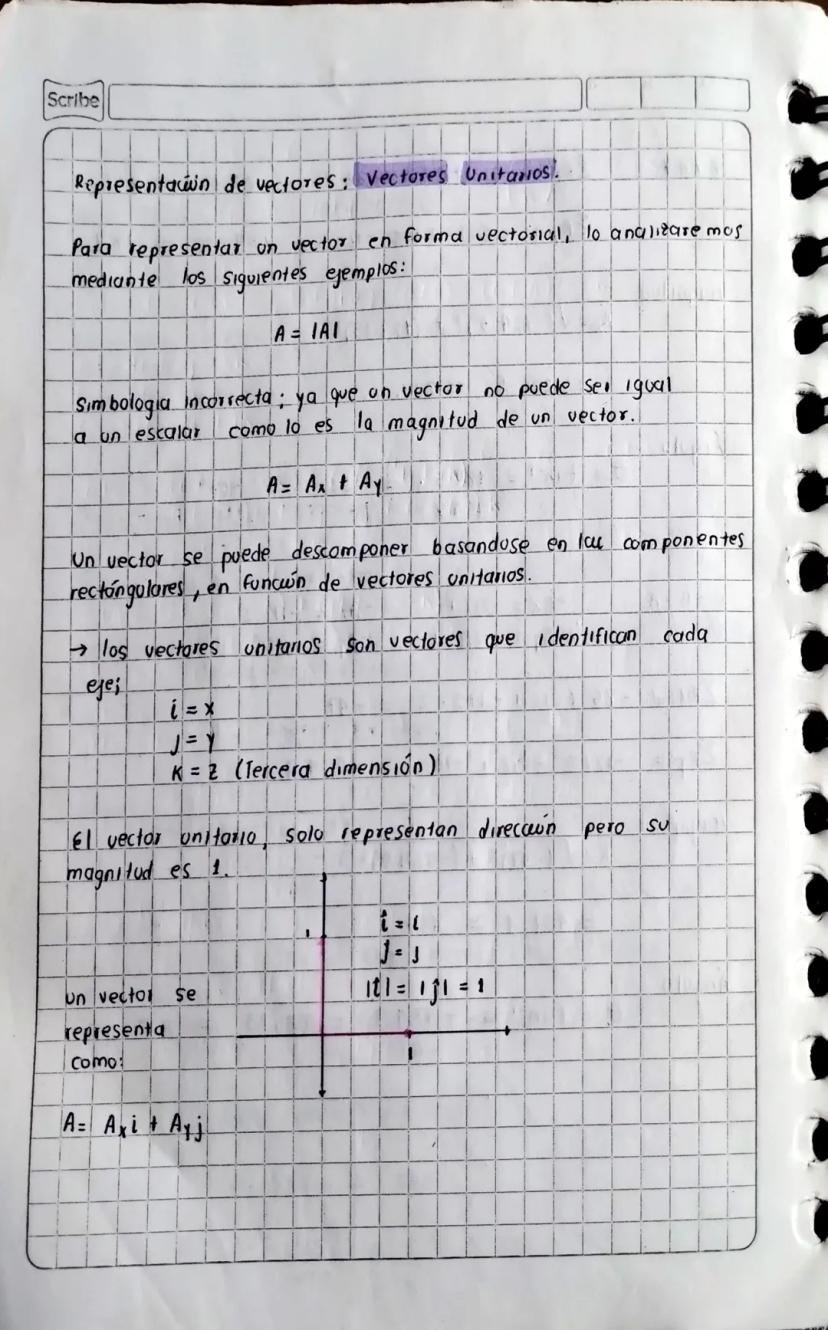 Scribe
Representación de vectores: Vectores Unitarios.
Para representar un vector en forma vectorial, lo analizaremos
mediante los siguientes ejemplos:
A = |A|
Simbologia incorrecta; ya que un vector no puede ser igual
a un escalar como lo es la magnitud de un vector.
A = Ax + Ay
Un vector se puede descomponer basandose en las componentes
rectángulares, en función de vectores unitarios.
→ los vectores unitarios son vectores que identifican cada
eje;
i = x
j = y
k = z (Tercera dimensión)
El vector unitario, solo representan dirección pero su
magnitud es 1.
î = i
ĵ = j
1
|î| = |ĵ| = 1
Un vector se
representa
como:
1
A = Axi + Ayj